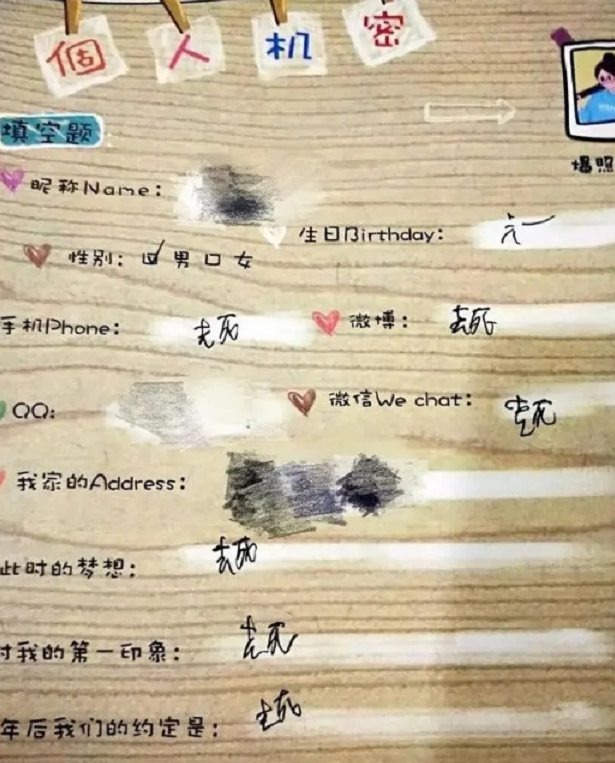 個人机密
填空题
爆照
昵称Name:
生日Birthday:
性别: 男 口 女
手机Phone: 去死
微博: 去死
QQ:
微信We chat: 去死
我家的Address:
此时的梦想: 去死
对我的第一印象: 去死
年后我们的约定是: 去死